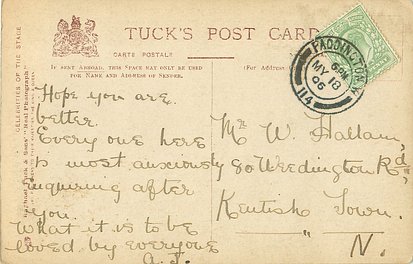 TUCK'S POST CARD
CARTE POSTALE
IF SENT ABROAD, THIS SPACE MAY ONLY BE USED
FOR NAME AND ADDRESS OF SENDER.
(FOR ADDRESS ONLY.)
CELEBRITIES OF THE STAGE
Raphael Tuck & Sons' "Real Photograph"
PADDINGTON W
6 PM
MY 18
06
114
Hope you are
better.
Every one here
is most anxiously
inquiring after
you.
What it is to be
loved by everyone
Mr W. Hallam,
80 Weedington Rd,
Kentish Town.
N.